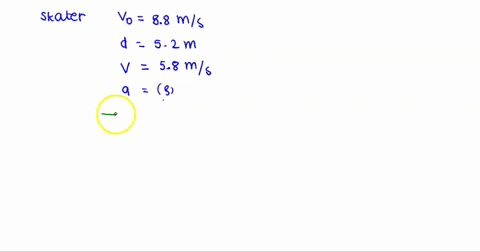 skater V₀ = 8.8 m/s
d = 5.2 m
V = 5.8 m/s
a = (?)